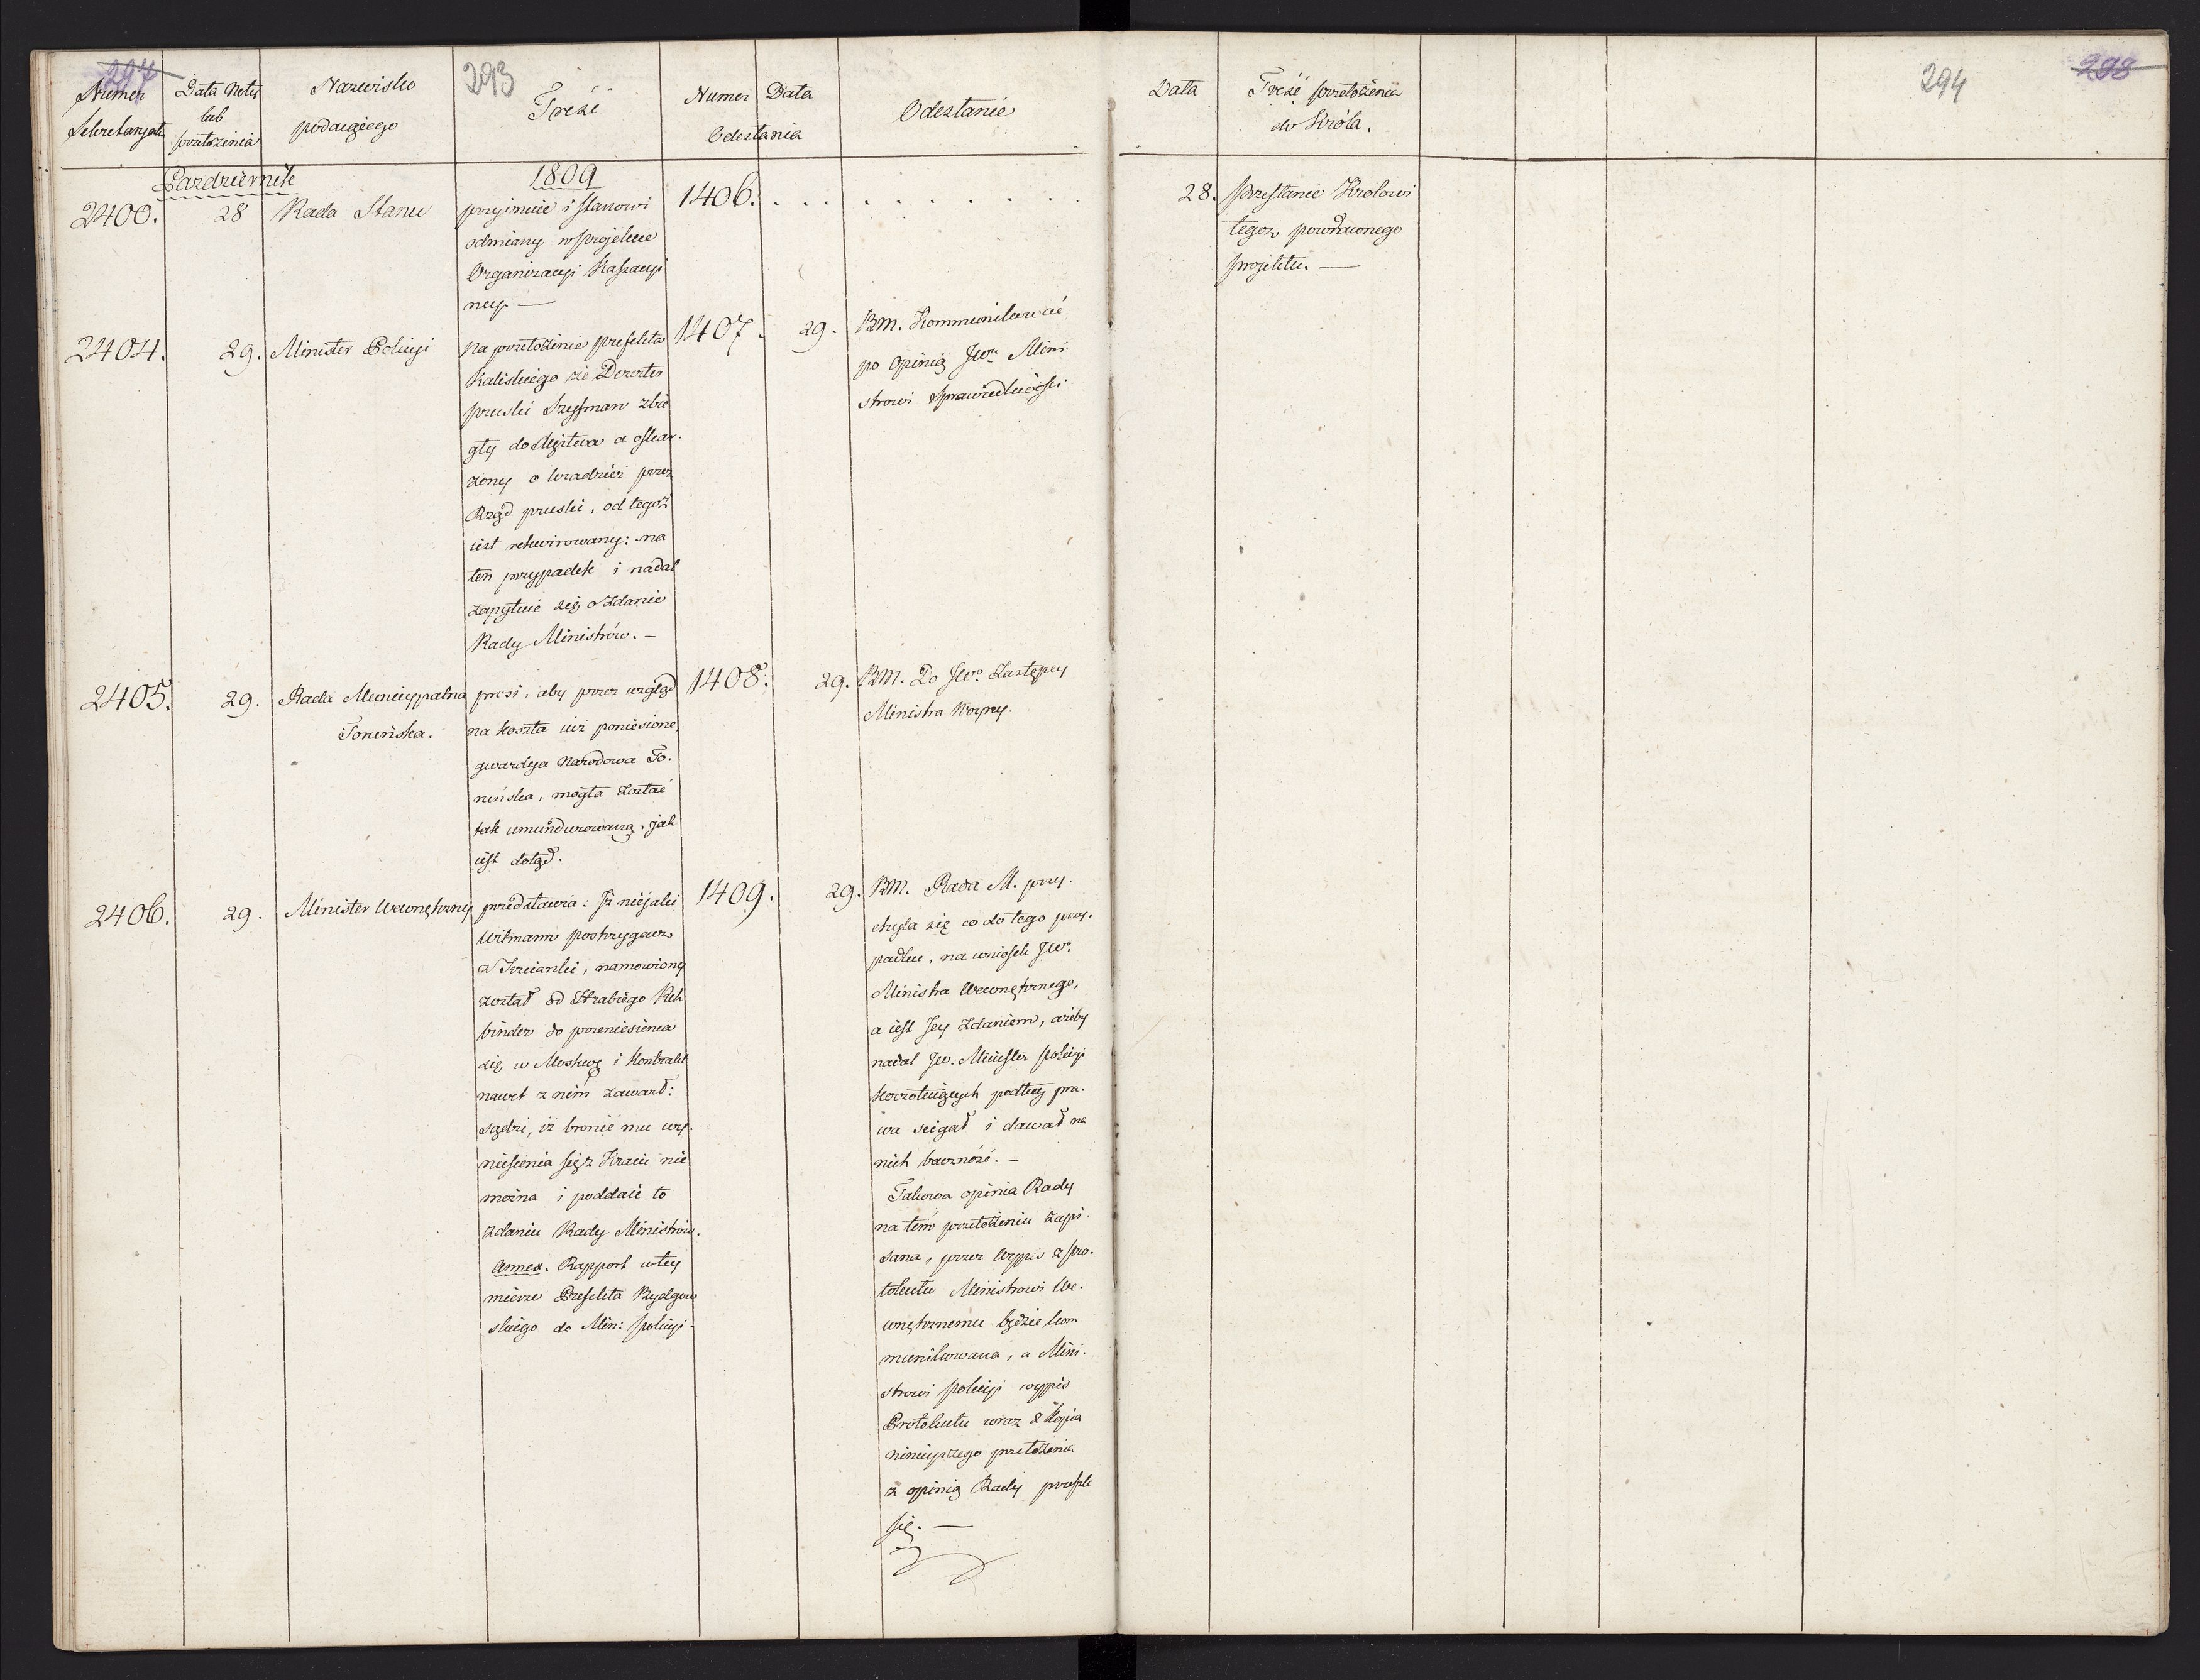 297
293
Numer
Sekretaryatu
Data Noty
lub
przełożenia
Nazwisko
podaiącego
Treść
Numer Data
Odesłania
Odesłanie
Październik
1809
2400.
28
Rada Stanu
przyimuie i stanowi
odmiany w projekcie
Organizacyi Kassacyi
ney —
1406. . . . . . . . . . . .
2404.
29.
Minister Policyi
na przełożenie prefekta
Kaliskiego że Dezerter
pruski Szysman zbie
gły do Xięstwa a oskar.
żony o kradzież przez
Rząd pruski, od tegoż
iest rekwirowany: na
ten przypadek i nadal
zapytuie się o zdanie
Rady Ministrów. —
1407.
29.
BM. Kommunikować
po opinią JWu Mini
strowi Sprawiedliwości
2405.
29.
Rada Municypalna
Toruńska.
prosi, aby przez wzgląd
na koszta iuż poniesione,
gwardya Narodowa To.
ruńska, mogła zostać
tak umundurowaną, jak
iest dotąd.
1408.
29.
BM. Do JWo Zastępcy
Ministra Woyny.
2406.
29.
Minister Wewnętrzny
przedstawia: Iż nieiaki
Witmann postrzygacz
z Trzcianki, namowiony
został od Hrabiego Reh
binder do przeniesienia
się w Moskwę i Kontrakt
nawet z nim zawarł:
sądzi, iż bronić mu wy.
niesienia się z Kraiu nie
można i poddaie to
zdaniu Rady Ministrów.
Annex. Rapport w tey
mierze Prefekta Bydgow
skiego do Min: policyi.
1409.
29.
BM. Rada M. przy.
chyla się co do tego przy.
padku, na wniosek JWo
Ministra Wewnętrznego,
a iest Jey zdaniem, ażeby
nadal JW. Minister policyi
podług pra.
wa scigał i dawał na
nich baczność. —
Takowa opinia Rady
na tem przełożeniu zapi.
sana, przez Wypis z pro.
tokułu Ministrowi We.
wnętrznemu będzie kom
munikowana, a Mini.
strowi policyi wypis
Protokułu wraz z kopią
ninieyszego przełożenia
z opinią Rady prześle
się. —
294
298
Data
Treść przełożenia
do Króla.
28.
przesłanie Królowi
tegoz poprawionego
projektu. —